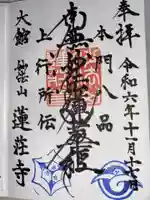 奉拝
令和六年十一月十七日
本門八品
南無妙法蓮華経
上行所伝
大館
山
蓮荘寺